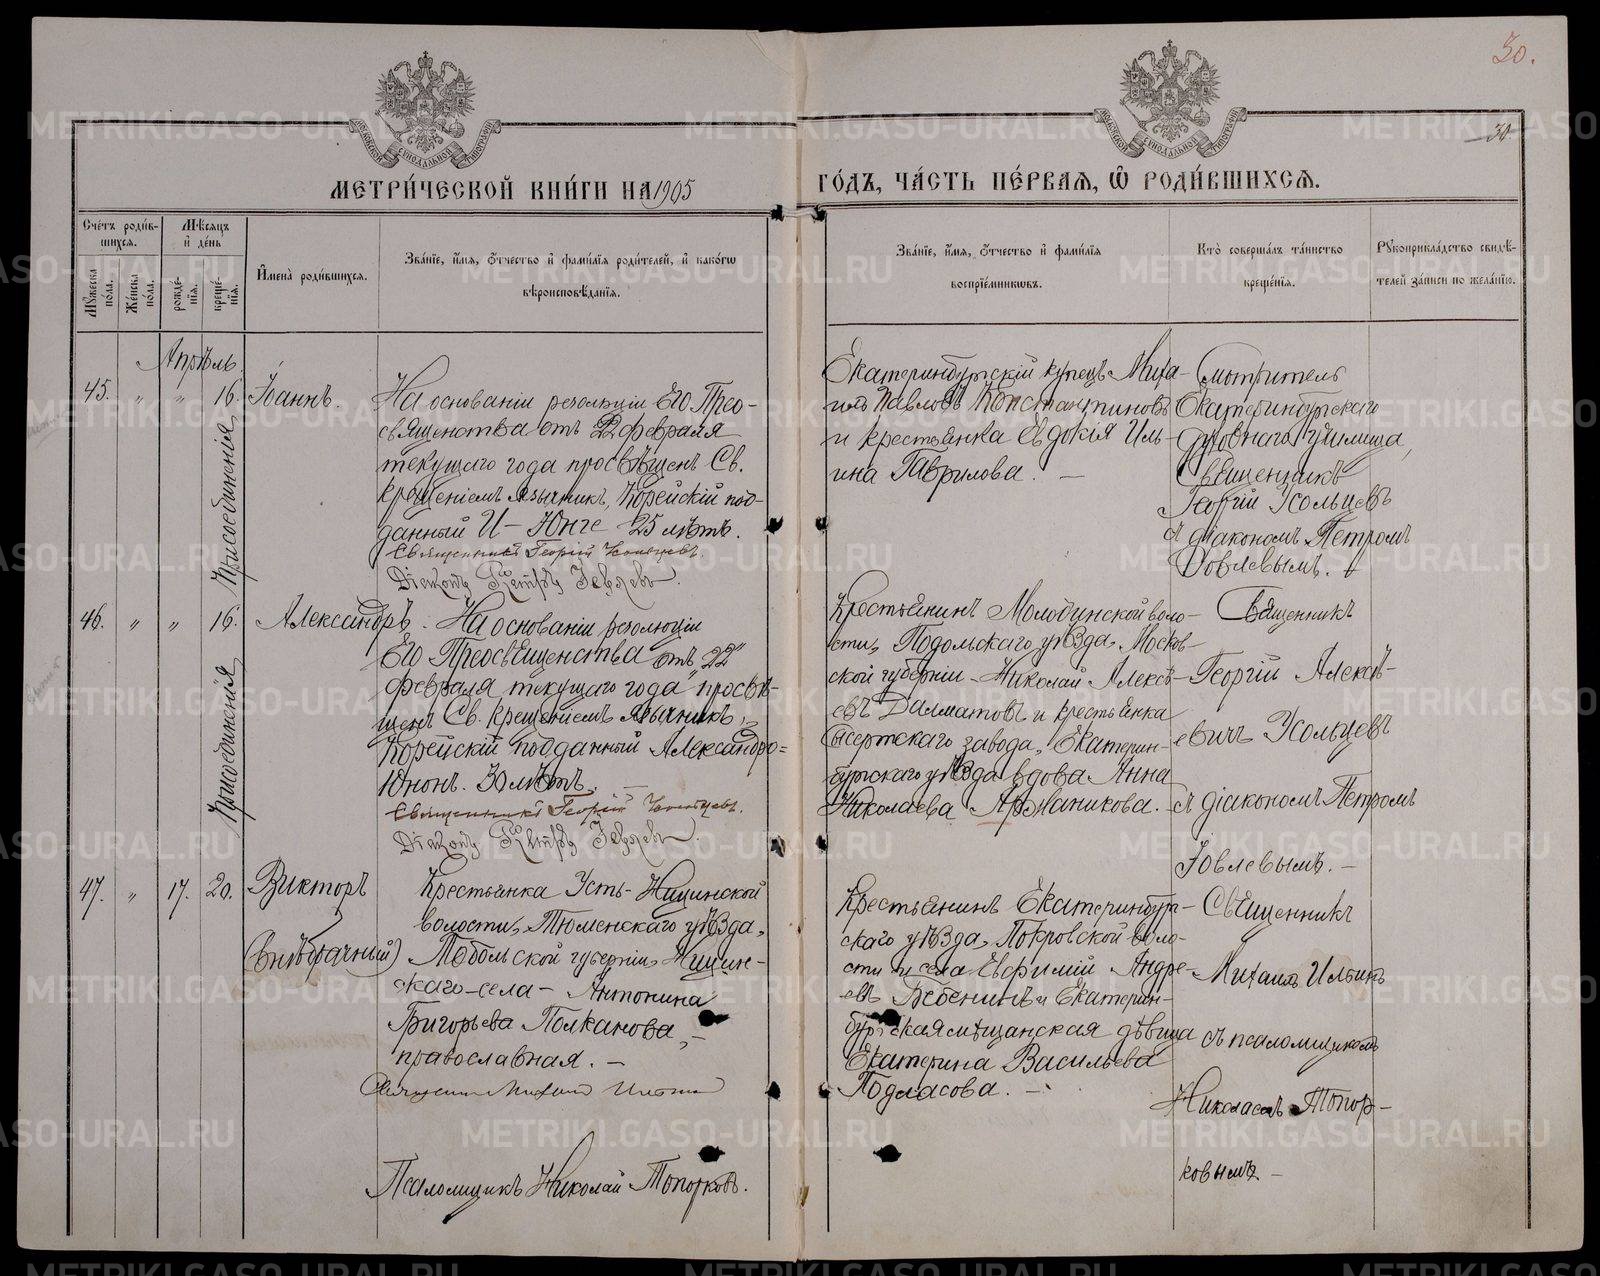 30.
30
МЕТРИ́ЧЕСКОЙ КНИ́ГИ НА 1905
ГО́ДЪ, ЧА́СТЬ ПЕ́РВАЯ, Ѿ РОДИ́ВШИХСЯ.
Сче́тъ роди́в-
шихся.
Мѣ́сяцъ
и де́нь
Мꙋ́жеска
по́ла.
Же́нска
по́ла.
рожде́-
нїя.
креще́-
нїя.
И҆мена̀ роди́вшихся.
Зва́нїе, и҆́мя, ѻ҆́тчество и҆ фами́лїя роди́телей, и҆ како́гѡ
вѣроисповѣ́данїя.
Зва́нїе, и҆́мя, ѻ҆́тчество и҆ фами́лїя
воспрїе́мникѡвъ.
Кто̀ соверша́лъ та́инство
креще́нїя.
Рꙋкоприкла́дство свидѣ́-
телей за́писи по жела́нїю.
Апрѣль.
45. " " 16. Іоаннъ.
Присоединенія
На основаніи резолюціи Его Прео-
священства отъ 22 февраля
текущаго года просвѣщенъ Св.
Крещеніемъ язычникъ, Корейскій под-
данный И-Юнге 25 лѣтъ.
Священникъ Георгій Усольцевъ.
Діаконъ Петръ Іевлевъ.
Екатеринбургскій купецъ Миха-
илъ Павловъ Константиновъ
и крестьянка Евдокія Иль-
ина Гаврилова. —
Смотритель
Екатеринбургскаго
духовнаго училища,
Священникъ
Георгій Усольцевъ
съ діакономъ Петромъ
Іовлевымъ.
46. " " 16. Александръ.
Присоединенія
На основаніи резолюціи
Его Преосвященства отъ "22"
февраля текущаго года просвѣ-
щенъ Св. Крещеніемъ язычникъ,
Корейскій подданный Александро=
Юнонъ. 30 лѣтъ. —
Священникъ Георгій Усольцевъ.
Діаконъ Петръ Іевлевъ.
Крестьянинъ Молодинской воло-
сти, Подольскаго уѣзда, Москов-
ской губерніи Николай Алексѣ-
евъ Далматовъ и крестьянка
Сысертскаго завода, Екатерин-
бургскаго уѣзда вдова Анна
Николаева
Священникъ
Георгій Алексѣ-
евичъ Усольцевъ
съ діакономъ Петромъ
Іовлевымъ. —
47. " 17. 20. Викторъ
(внѣбрачный)
Крестьянка Усть-Ницинской
волости, Тюменскаго уѣзда,
Тобольской губерніи, Ницин-
скаго села — Антонина
Григорьева Полканова,
православная. —
Священникъ Михаилъ Ильинъ
Псаломщикъ Николай Топорковъ.
Крестьянинъ Екатеринбур-
скаго уѣзда, Покровской воло-
сти и села Евфимій Андре-
евъ Бебенинъ и Екатерин-
бургская мѣщанская дѣвица
Екатерина Васильева
Подласова. —
Священникъ
Михаилъ Ильинъ
съ псаломщикомъ
Николаемъ Топор-
ковымъ —
METRIKI.GASO-URAL.RU